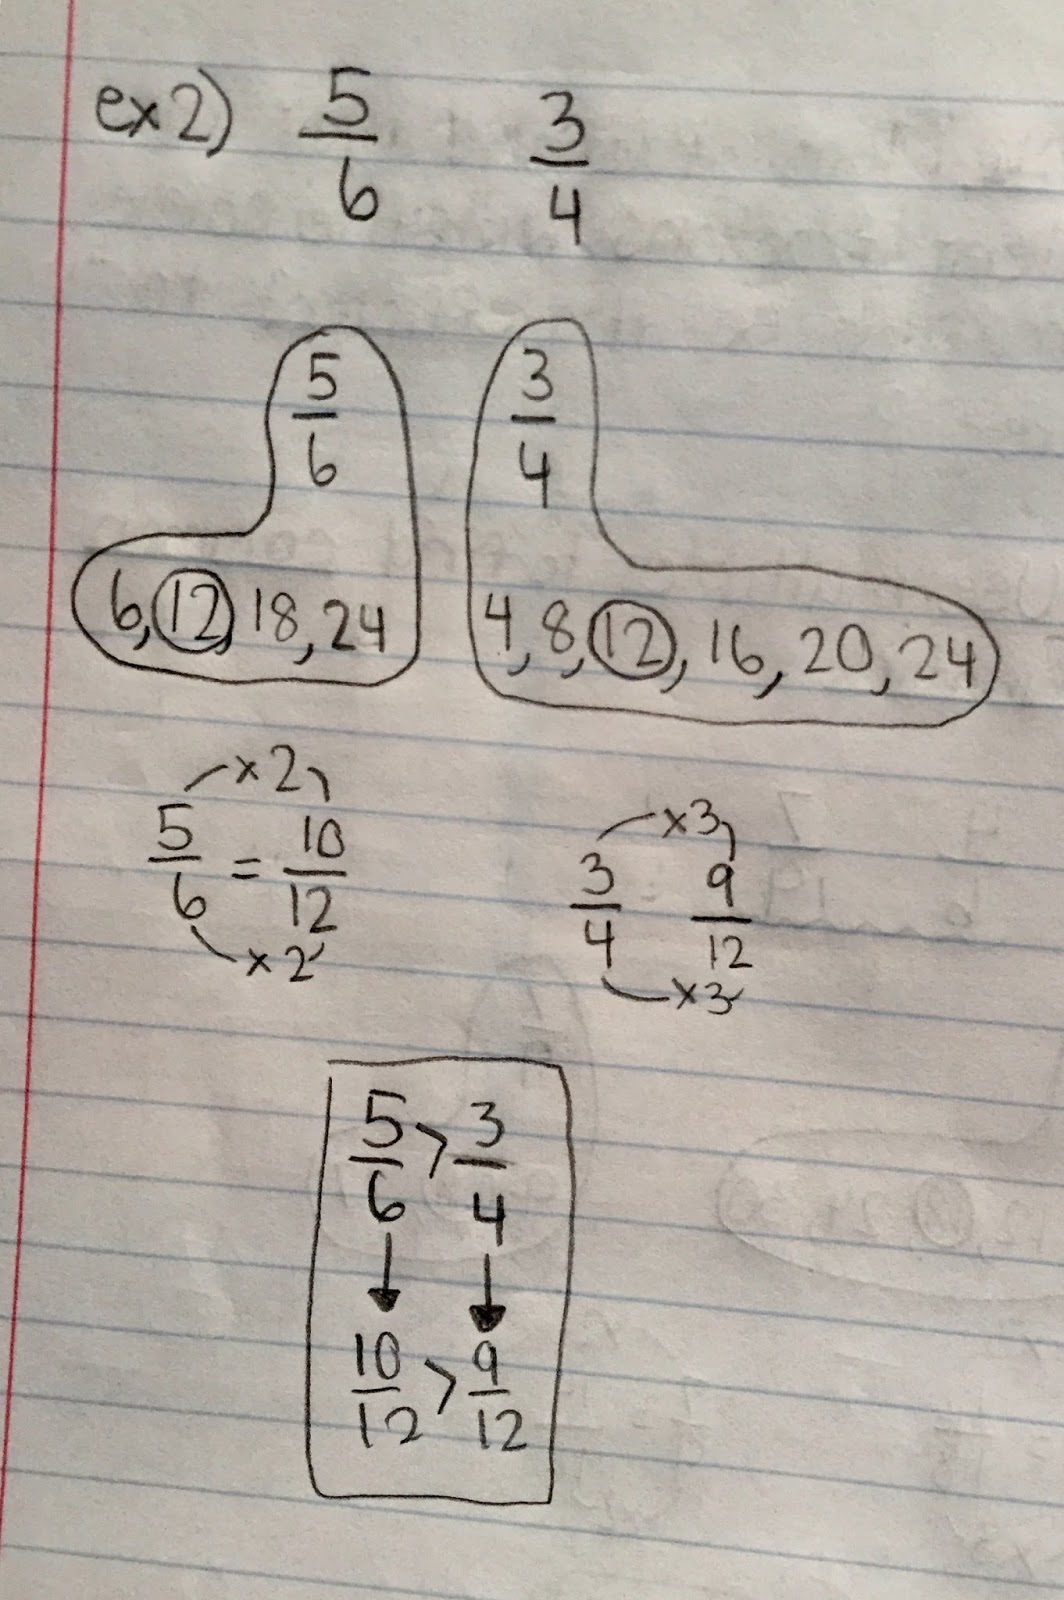 ex 2) 5/6 3/4
5/6 3/4
6, 12, 18, 24 4, 8, 12, 16, 20, 24
×2 ×3
5/6 = 10/12 3/4 9/12
×2 ×3
5/6 > 3/4
10/12 > 9/12